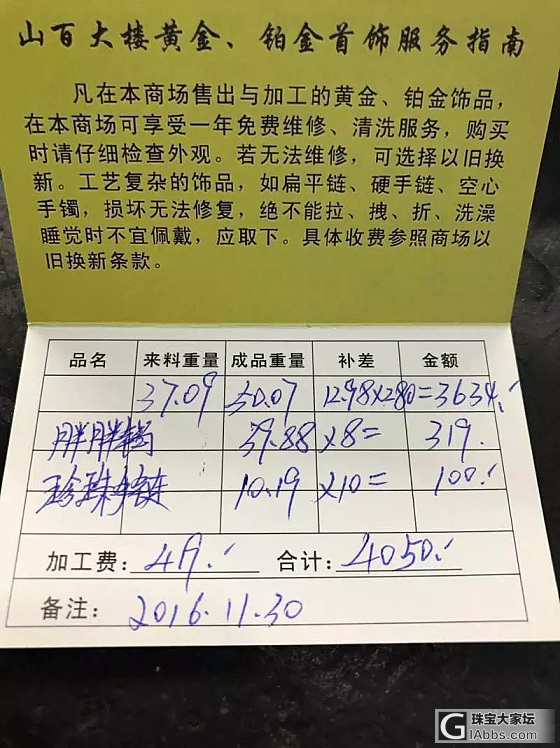 山百大楼黄金、铂金首饰服务指南
凡在本商场售出与加工的黄金、铂金饰品，
在本商场可享受一年免费维修、清洗服务，购买
时请仔细检查外观。若无法维修，可选择以旧换
新。工艺复杂的饰品，如扁平链、硬手链、空心
手镯，损坏无法修复，绝不能拉、拽、折、洗澡
睡觉时不宜佩戴，应取下。具体收费参照商场以
旧换新条款。
品名 来料重量 成品重量 补差 金额
37.09 50.07 12.98×280= 3634.
胖胖镯 39.88 ×8= 319.
珍珠手链 10.19 ×10= 100.
加工费：419. 合计：4050.
备注：2016.11.30
珠宝大家坛
GIAbbs.com